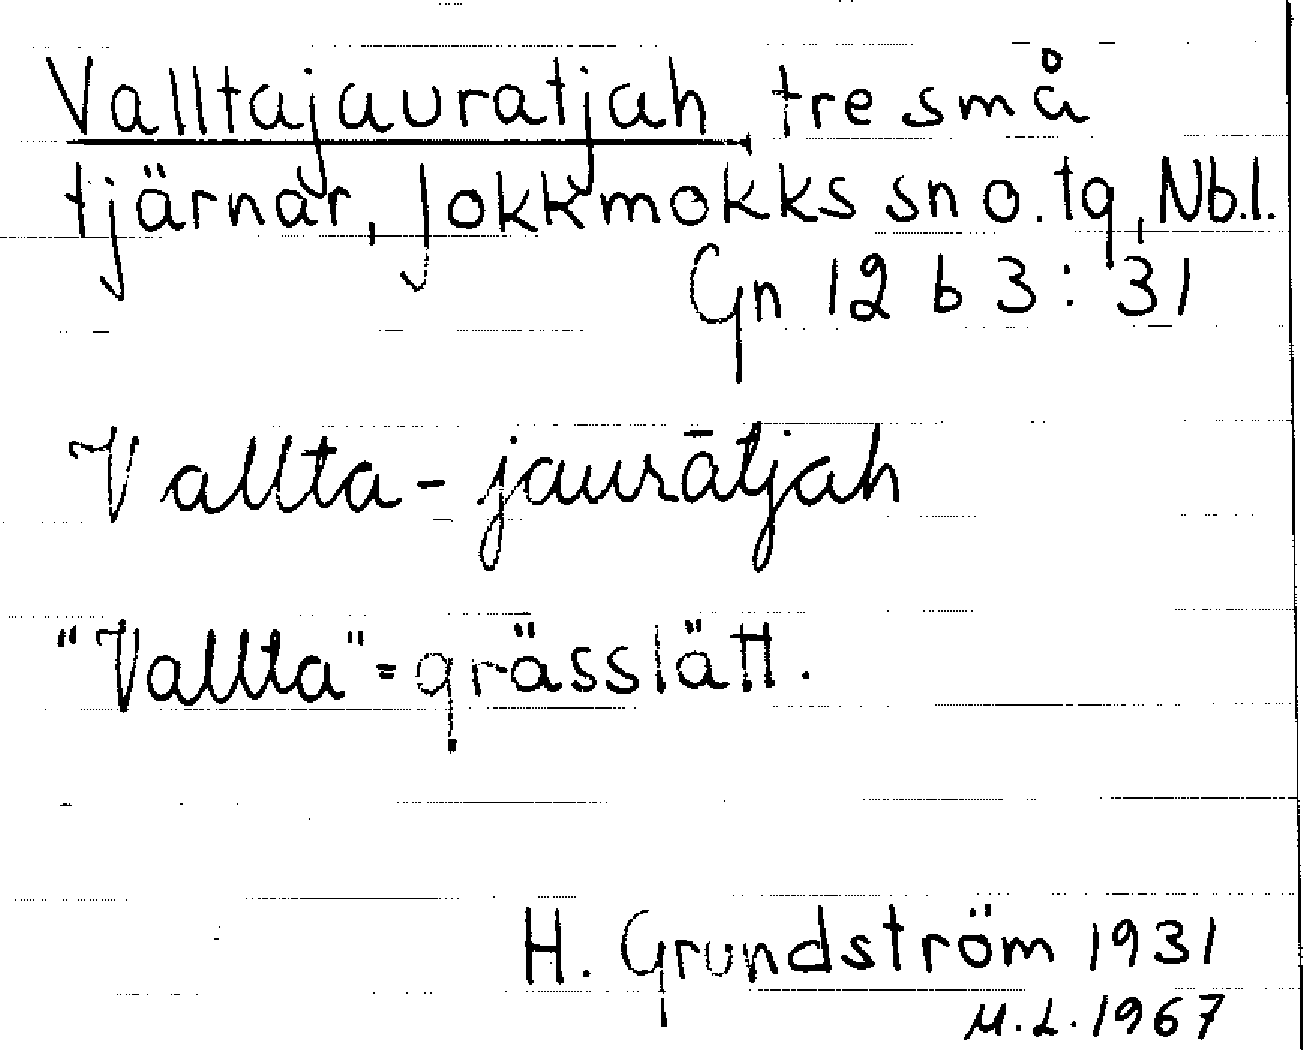 Valltajauratjah, tre små
tjärnar, Jokkmokks sn o. tg, Nb.l.
Gn 12 b 3 : 31
Vallta - jaurātjah
"Vallta" = grässlätt.
H. Grundström 1931
M.L. 1967